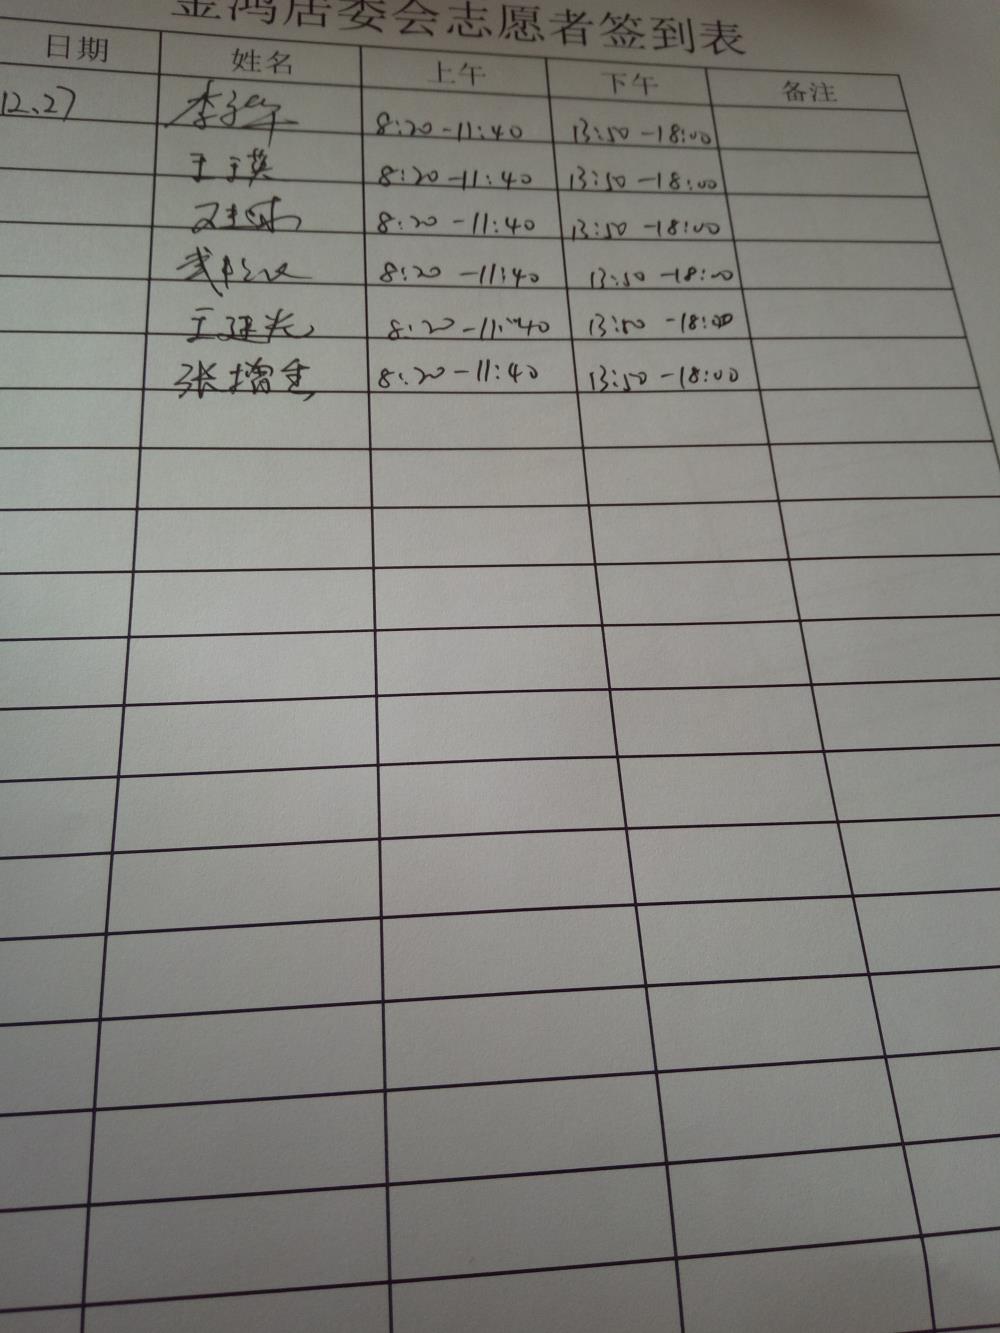 金鸿居委会志愿者签到表
日期 姓名 上午 下午 备注
12.27 李 8:20-11:40 13:50-18:00
王玉英 8:20-11:40 13:50-18:00
8:20-11:40 13:50-18:00
8:20-11:40 13:50-18:00
王建光 8:20-11:40 13:50-18:00
张增 8:20-11:40 13:50-18:00